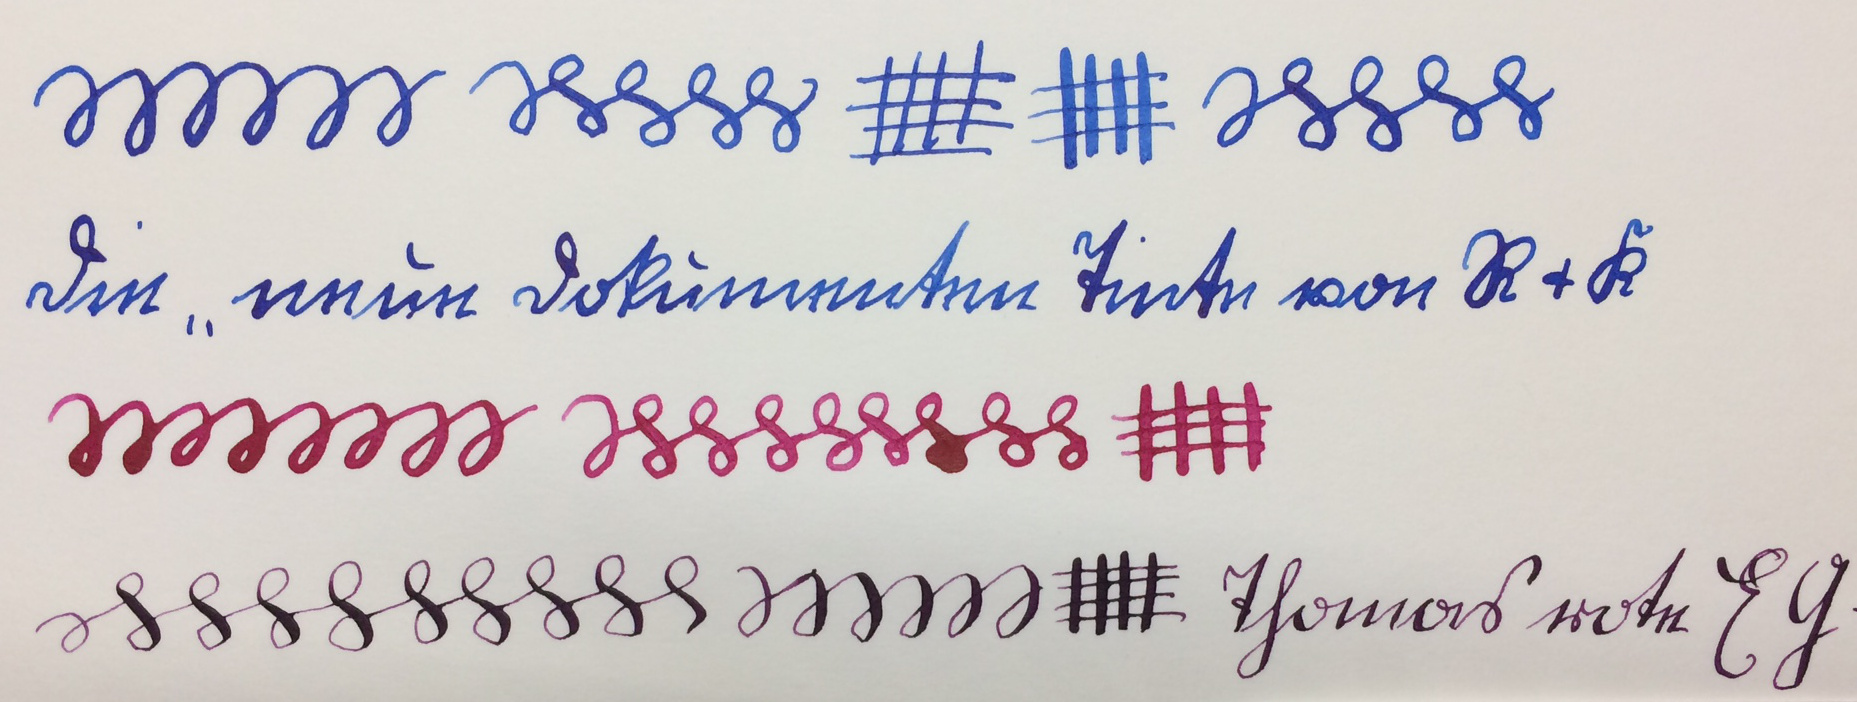 Die „neue Dokumenten Tinte von R + K
Thomas rote EG-